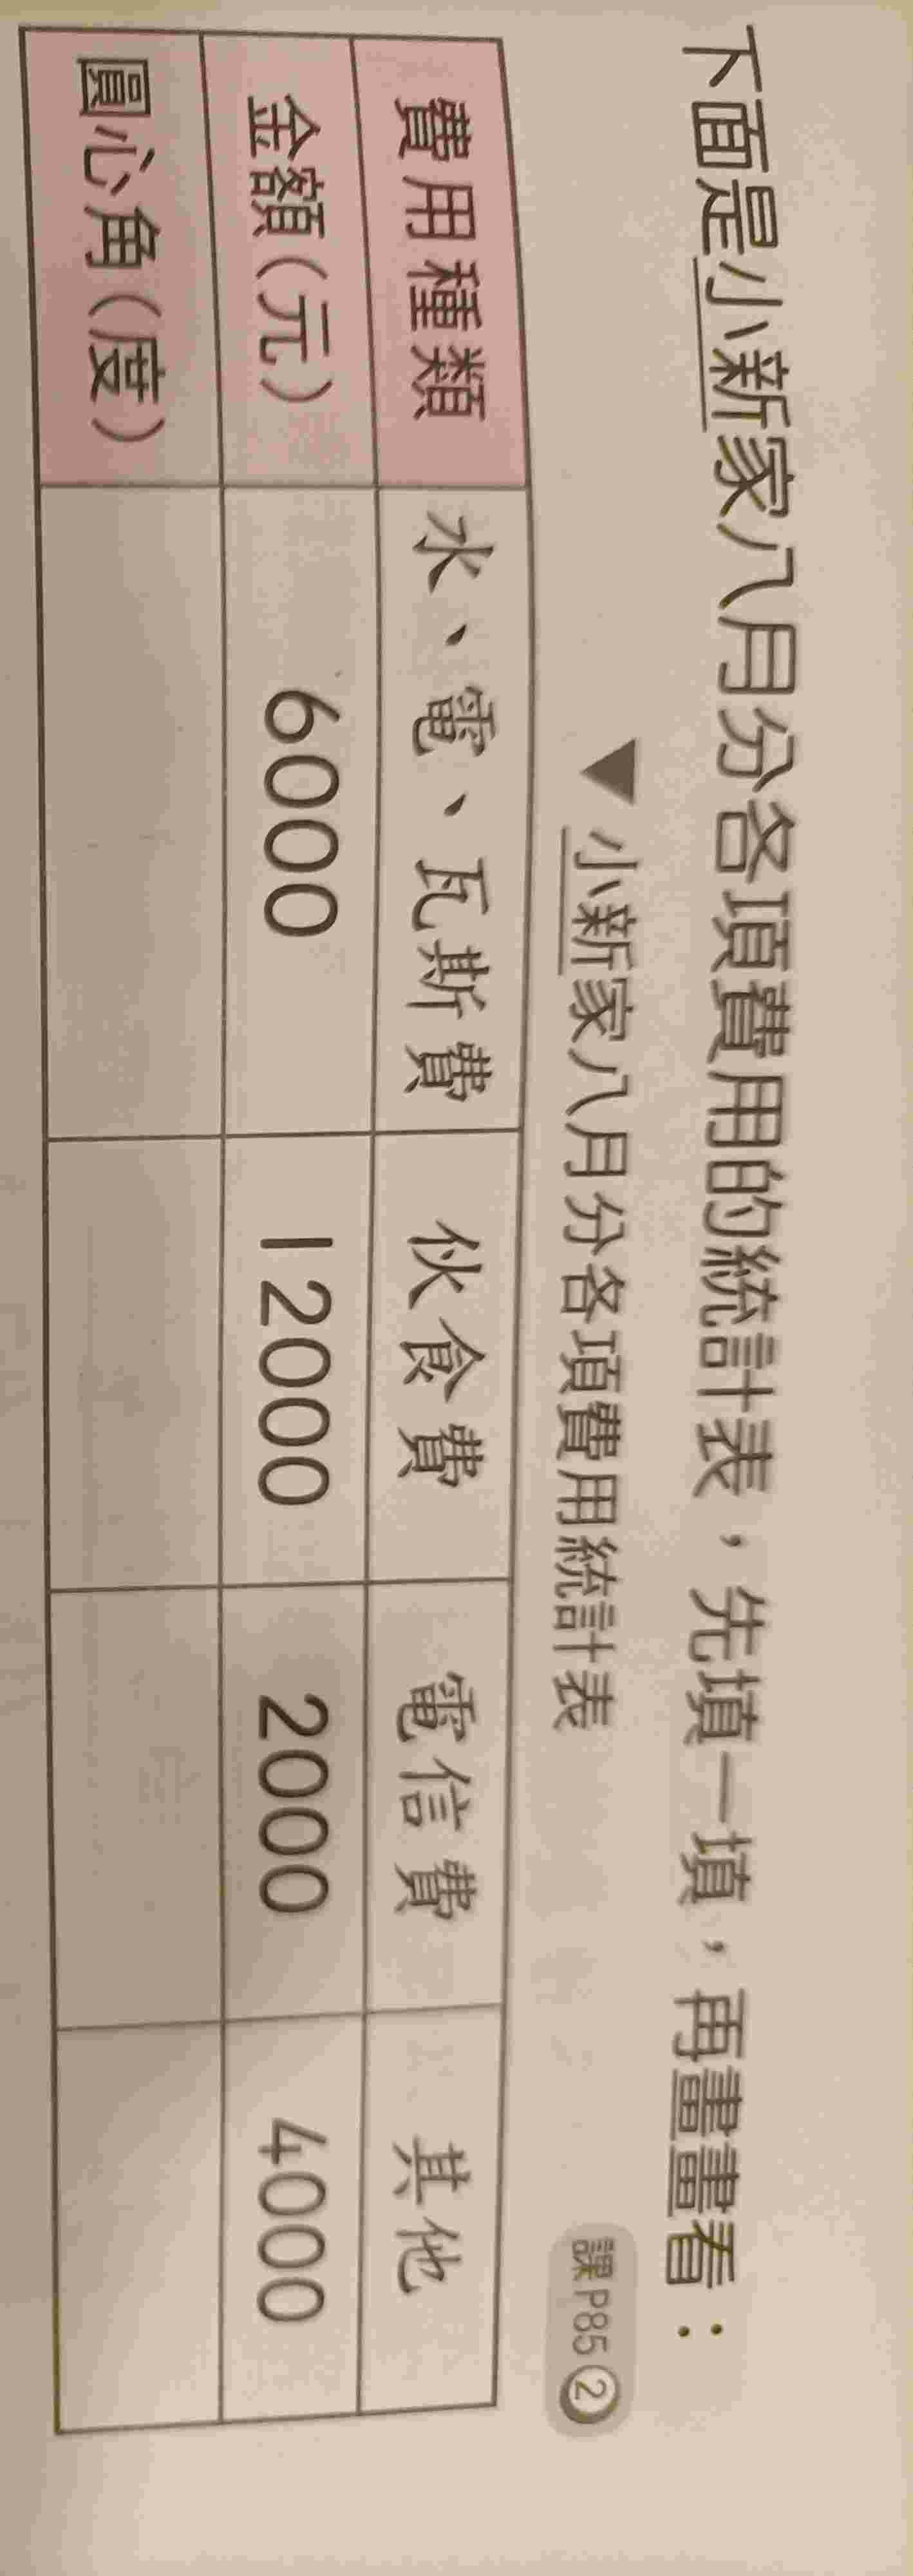 下面是小新家八月分各項費用的統計表，先填一填，再畫畫看：
▼小新家八月分各項費用統計表
課P85②
費用種類 水、電、瓦斯費 伙食費 電信費 其他
金額(元) 6000 12000 2000 4000
圓心角(度)